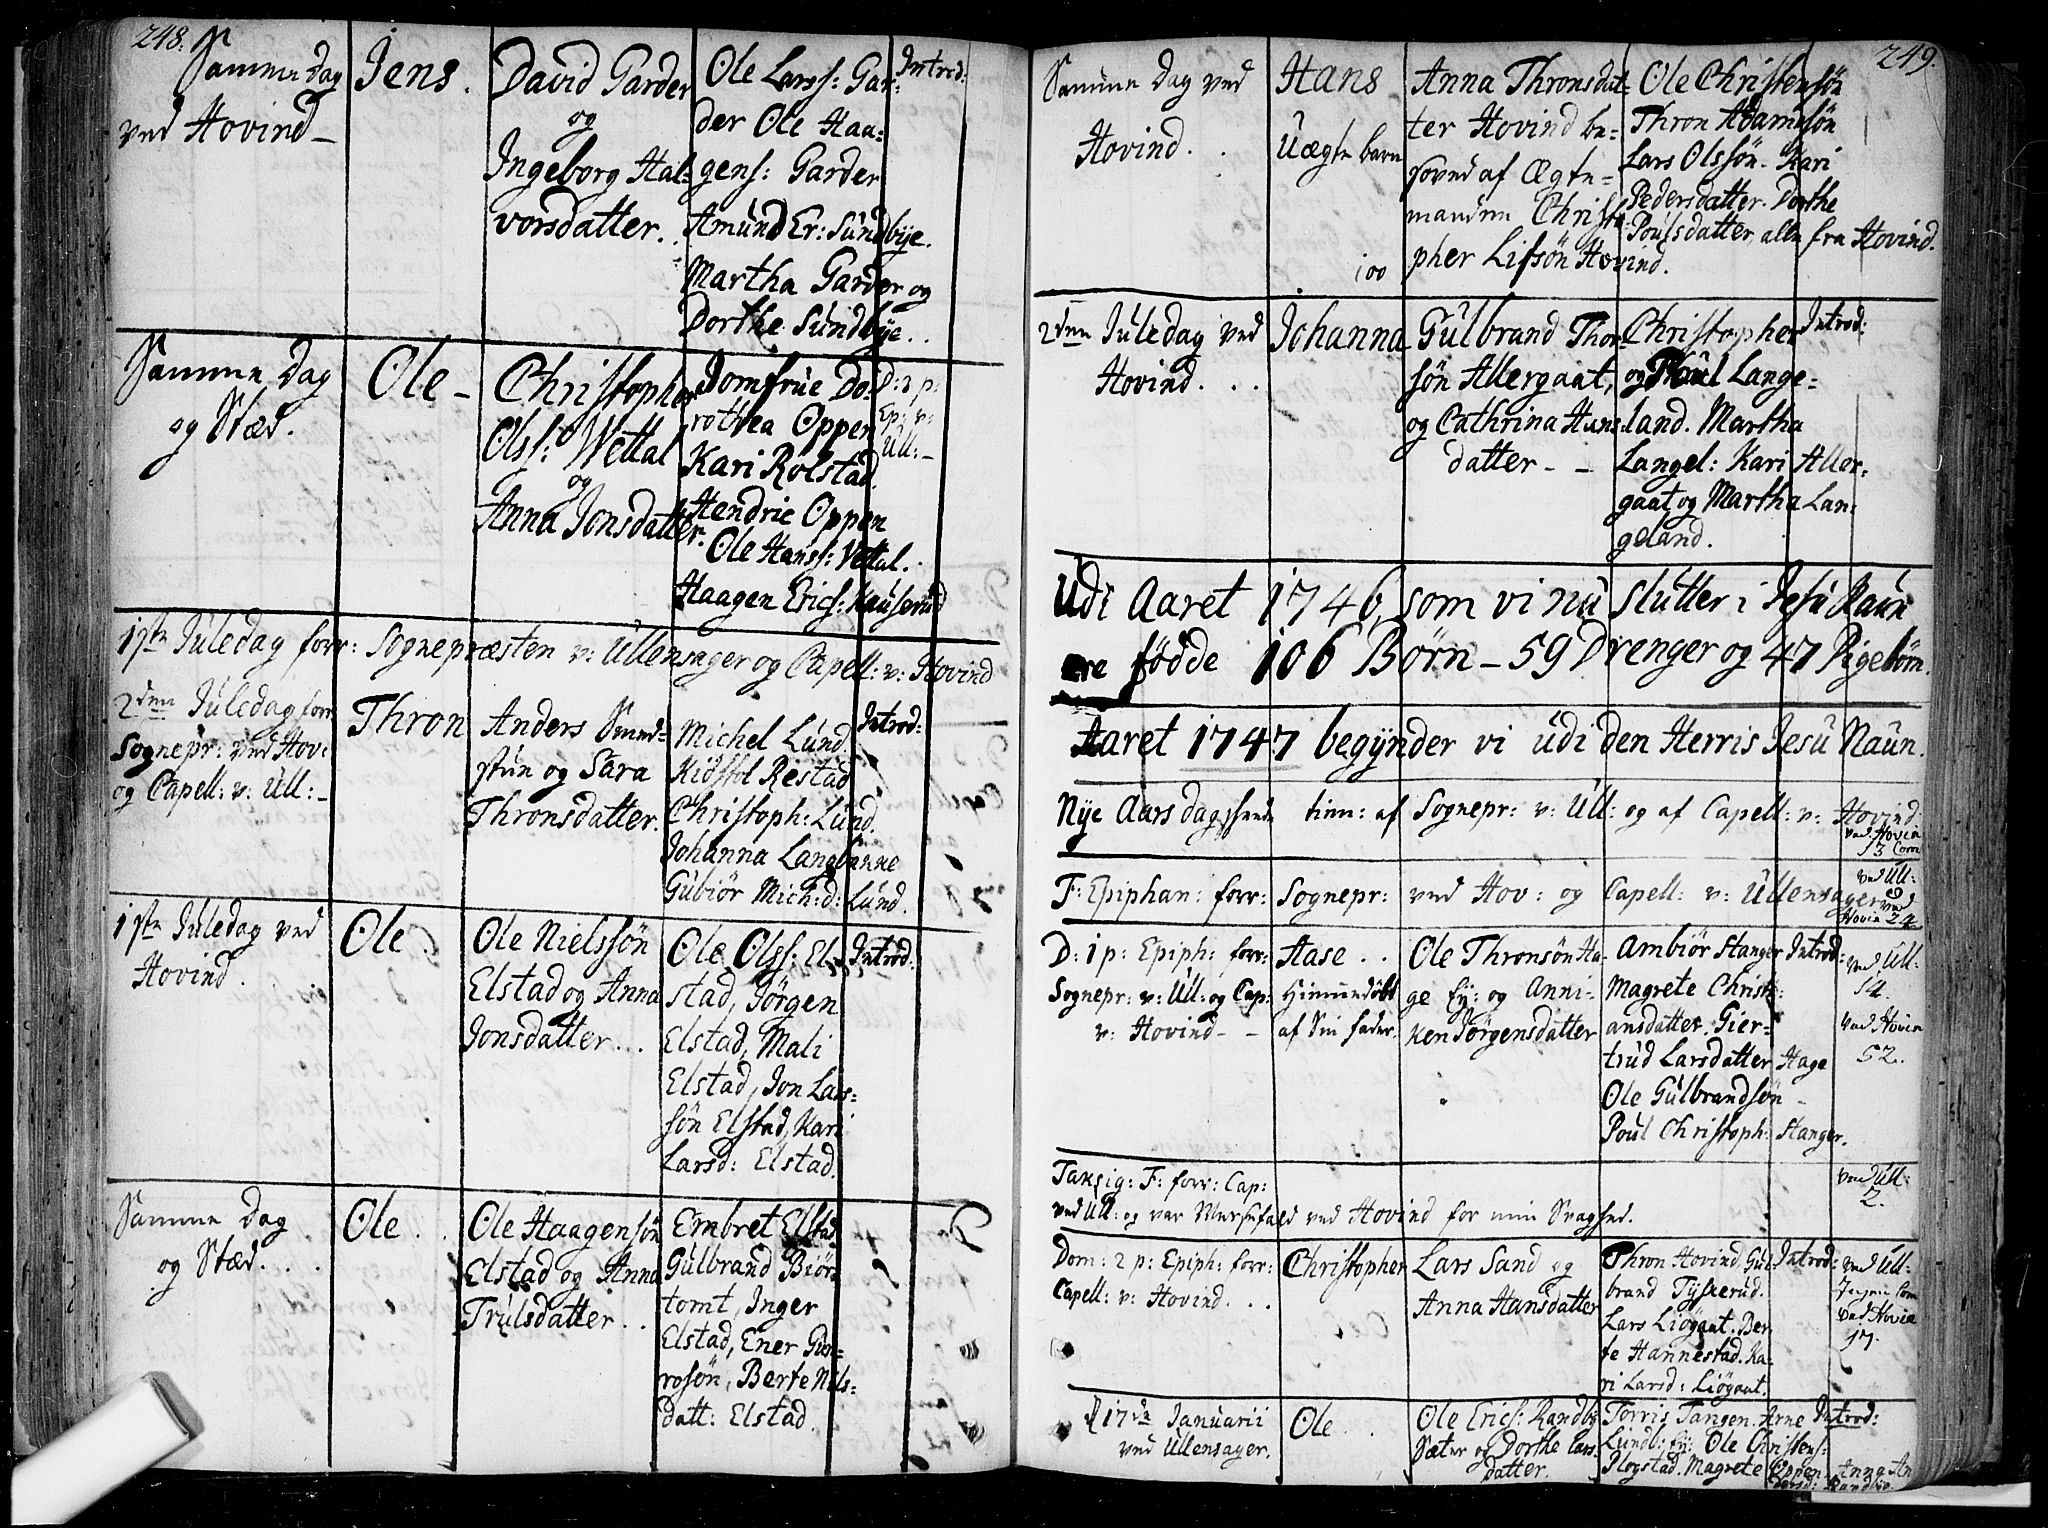 248.
Samme Dag
ved Hovind –
Jens.
David Garder
og
Ingeborg Hal-
vorsdatter.
Ole Larss: Gar-
der Ole Haa-
gens: Garder
Amund Er: Sundbye.
Martha Garder og
Dorthe Sundbye..
Introd:
Samme Dag
og Stæd.
Ole –
Christopher
Olss: Wettal
og
Anna Jonsdatter.
Jomfrue Do-
rothea Oppen
Kari Rolstad.
Hendric Oppen
Ole Hanss: Vettal.
Haagen Erics: Kauserud
D: 2 p:
Ep: v:
Ull: –
1ste Juledag forr: Sognepræsten v: Ullensager og Capell: v: Hovind
2den Juledag forr
Sognepr: ved Hov:
og Capell: v: Ull: –
Thron
Anders
stun og Sara
Thronsdatter.
Michel Lund
Kidstol Restad
Christoph: Lund.
Johanna Langbakke
Gubiør Mich: d: Lund.
Introd:
1ste Juledag ved
Hovind.
Ole.
Ole Nielssøn
Elstad og Anna
Jonsdatter...
Ole Olss: El-
stad, Jørgen
Elstad, Mali
Elstad, Jon Lars-
søn Elstad, Kari
Larsd: Elstad.
Introd:
Samme Dag
og Stæd...
Ole..
Ole Haagensøn
Elstad og Anna
Trulsdatter..
Embret Elstad
Gulbrand Biørn
tomt, Inger
Elstad, Ener Gun-
rosøn, Berte Nils-
datt: Elstad.
249.
Samme Dag ved
Hovind..
Hans
Uægte barn
100
Anna Thronsdat-
ter Hovind be-
soved af Ægte-
manden Christo-
pher Lifsøn Hovind.
Ole Christensøn
Thron Adamsøn
Lars Olssøn. Kari
Pedersdatter. Dorthe
Poulsdatter alle fra Hovind.
2den Juledag ved
Hovind...
Johanna
Gulbrand Thor-
søn Allergaat,
og Cathrina Hans
datter – –
Christopher
og Poul Lange-
land. Martha
Langel: Kari Aller-
gaat og Martha Lan-
geland.
Introd:
Udi Aaret 1746, som vi nu slutter i Jesu Naun
ere fødde 106 Børn – 59 Drenger og 47 Pigebørn.
Aaret 1747 begynder vi udi den Herris Jesu Naun.
Nye Aars dag tien: af Sognepr: v: Ull: og af Capell: v: Hovind:
ved Hovin
13 Com
F: Epiphan: forr: Sognepr: ved Hov: og Capell: v: Ullensager
ved Ull:
ved
Hovin 24
D: 1 p: Epiph: forr:
Sognepr: v: Ull: og Cap:
v: Hovind – –
Aase..
Hiemmedøbt
af Sin fader.
Ole Thronsøn Ha-
ge Ey: og Anni-
ken Jørgensdatter
Ambiør Stanger
Magrete Christi-
ansdatter. Gier-
trud Larsdatter Hage
Ole Gulbrandsøn –
Poul Christoph: Stanger.
Introd:
ved Ull:
14.
ved Hovin
52.
Taksig: F: forr: Cap:
ved Ull: og var Messefald ved Hovind for min Svaghed.
ved Ull:
2.
Dom: 2 p: Epiph: forr:
Capell: v: Hovind...
Christopher
Lars Sand og
Anna Hansdatter
Thron Hovind. Gul-
brand Tyskerud.
Lars Liøgaat. Ber-
te Hannestad. Ka-
ri Larsd: Liøgaat.
Introd:
ved Ull:
Ingen Com
ved Hovin
17.
d 17de Januarii
ved Ullensager.
Ole..
Ole Erics: Randby
Sæter og Dorthe Lars-
datter.
Torris Tangen. Arne
Lundb: Ey: Ole Christens:
Plogstad. Magrete Oppen. Anna An
dersd: Randbye.
Introd: